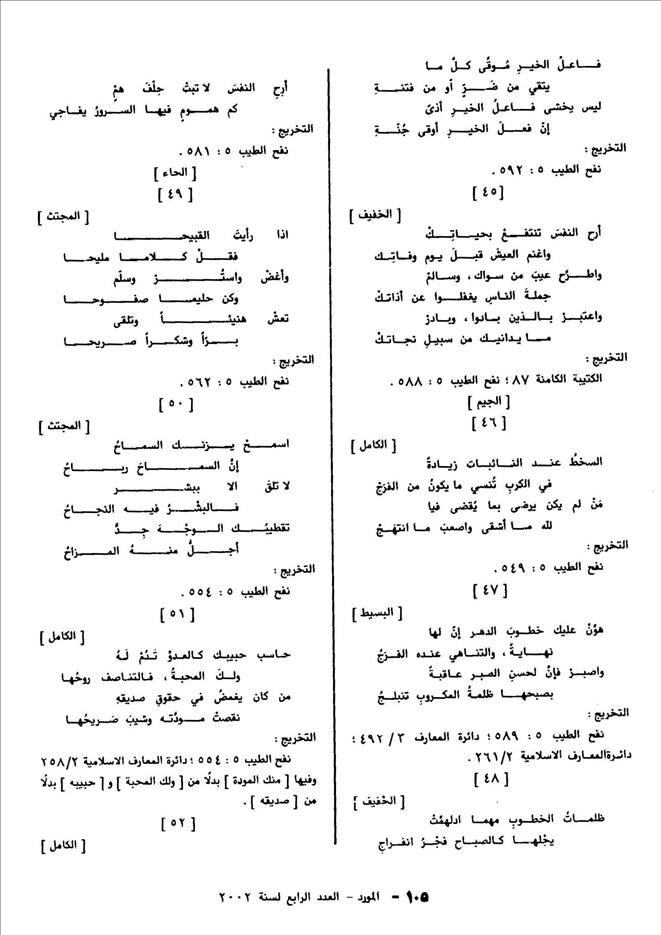 فـاعـلُ الخيـرِ مُـوقًى كـلَّ مـا
يتقي من ضَـرٍّ أو من فـتنـةِ
ليس يخشى فـاعـلُ الخيـرِ أذىً
إنّ فعـلَ الخيـرِ أوقى جُنّـةِ
التخريج :
نفح الطيب ٥ : ٥٩٢ .
[ ٤٥ ]
[ الخفيف ]
أرح النفسَ تنتفـعْ بحيـاتِـكْ
واغنم العيشَ قبـلَ يـوم وفاتِـكْ
واطـرحْ عيبَ من سواك ، وسـالمْ
جملةَ الناسِ يغفلـوا عن أذاتكْ
واعتبـرْ بـالـذين بـادوا ، وبـادرْ
مـا يدانيـك من سبيلِ نجاتـكْ
التخريج :
الكتيبة الكامنة ٨٧ ؛ نفح الطيب ٥ : ٥٨٨ .
[ الجيم ]
[ ٤٦ ]
[ الكامل ]
السخطُ عنـد النـائبـاتِ زيـادةٌ
في الكربِ تُنسي ما يكونُ من الفرَجْ
مَنْ لم يكن يرضى بما يُقضى فيا
لله مـا أشقى واصعبَ مـا انتهـجْ
التخريج :
نفح الطيب ٥ : ٥٤٩ .
[ ٤٧ ]
[ البسيط ]
هوّنْ عليك خطـوبَ الدهـر إنّ لها
نهـايـةً ، والتناهي عنده الفـرجُ
واصبـر فإنّ لحسنِ الصبـر عاقبـةً
بصبحهـا ظلمةُ المكـروبِ تنبلـجُ
التخريج :
نفح الطيب ٥ : ٥٨٩ ؛ دائرة المعارف ٣ / ٤٩٢ ؛
دائرة المعارف الاسلامية ٢/ ٢٦١ .
[ ٤٨ ]
[ الخفيف ]
ظلمـاتُ الخطـوبِ مهمـا ادلهمّتْ
يجْلهـا كـالصبـاح فجْـرُ انفـراجِ
أرِحِ النفسَ لا تبتْ حِلْفَ همٍّ
كم همـومٍ فيهـا السـرورُ يفـاجي
التخريج :
نفح الطيب ٥ : ٥٨١ .
[ الحاء ]
[ ٤٩ ]
[ المجتث ]
اذا رأيتَ القبيحـا
فقـلْ كـلامـا مليحـا
وأغضْ واستُـرْ وسلّم
وكن حليمـا صفـوحـا
تعشْ هنيئـاً وتلقى
بـرّاً وشكـراً صـريحـا
التخريج :
نفح الطيب ٥ : ٥٦٢ .
[ ٥٠ ]
[ المجتث ]
اسمـحْ يـزنـك السمـاحُ
إنّ السمـاحَ ربـاحُ
لا تلقَ الا ببشـرٍ
فـالبشْـرُ فيـه النجـاحُ
تقطيبُـك الـوجْـهَ جِـدٌّ
أجـلُّ منـهُ المـزاحُ
التخريج :
نفح الطيب ٥ : ٥٥٤ .
[ ٥١ ]
[ الكامل ]
حـاسب حبيبـك كـالعـدوّ تَـدُمْ لـهُ
ولـك المحبـةُ ، فـالتناصـف روحُها
من كان يغمضُ في حقوقِ صديقهِ
نقصتْ مـودّتُه وشيبَ ضريحُهـا
التخريج :
نفح الطيب ٥ : ٥٥٤ ؛ دائرة المعارف الاسلامية ٢/ ٢٥٨
وفيها [ منك المودة ] بدلًا من [ ولك المحبة ] و [ حبيبه ] بدلًا
من [ صديقه ] .
[ ٥٢ ]
[ الكامل ]
١٠٥ - المورد - العدد الرابع لسنة ٢٠٠٢